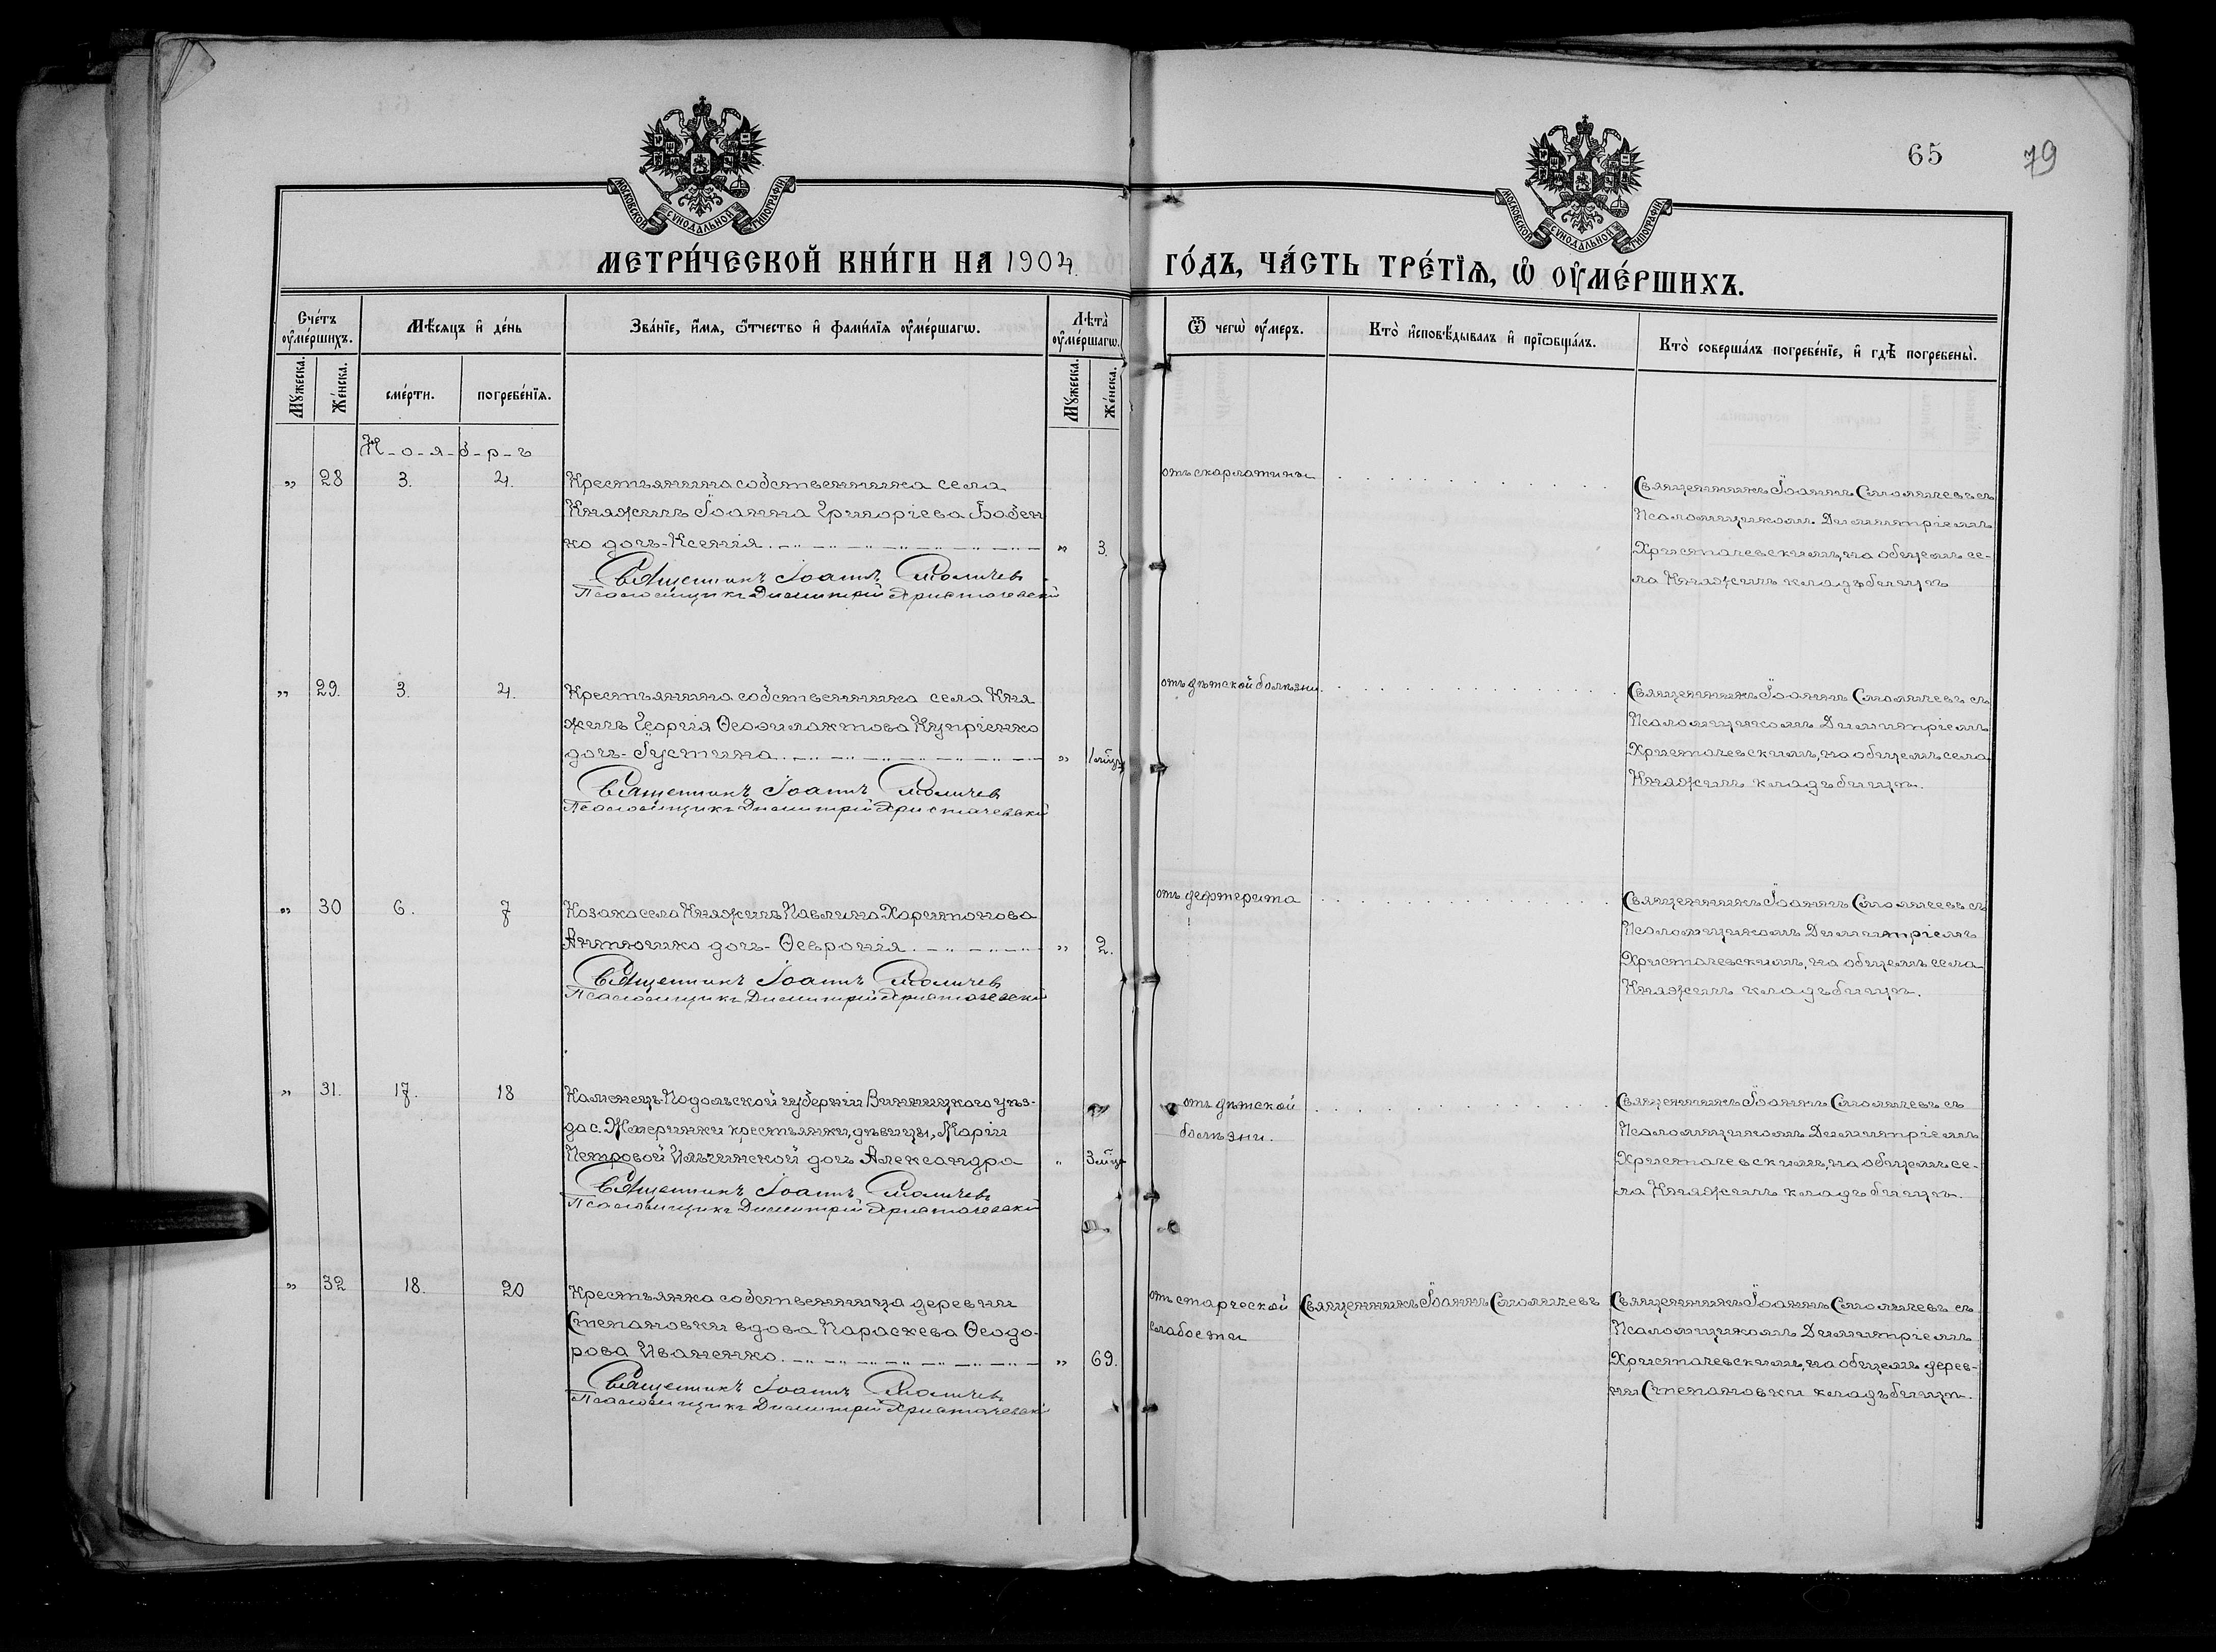 65
79
МОСКОВСКОЙ СѴНОДАЛЬНОЙ ТИПОГРАФІИ
МОСКОВСКОЙ СѴНОДАЛЬНОЙ ТИПОГРАФІИ
МЕТРИ́ЧЕСКОЙ КНИ́ГИ НА 1904
ГО́ДЪ, ЧА́СТЬ ТРЕ́ТІѦ, Ѡ҆ ОУ҆МЕ́РШИХЪ.
Сче́тъ оу҆ме́ршихъ.
Мѣ́сяцъ и҆ де́нь
Зва́нїе, и҆́мѧ, ѻ҆́тчество и҆ фами́лїѧ оу҆ме́ршагѡ.
Лѣ́та оу҆ме́ршагѡ.
Ѿ чегѡ̀ оу҆́меръ.
Кто̀ и҆сповѣ́дывалъ и҆ прїѡбща́лъ.
Кто̀ соверша́лъ погребе́нїе, и҆ гдѣ̀ погребены̀.
Мꙋ́жеска.
Же́нска.
сме́рти.
погребе́нїѧ.
Мꙋ́жеска.
Же́нска.
Н-о-я-б-р-ь
„ 28 3. 4.
Крестьянина собственника села
Княжичъ Іоанна Григоріева Бабен
ко дочь-Ксенія „ 3.
Священникъ Іоаннъ Смоличев
Псаломщикъ Димитрій Христачевскій
отъ скарлатины
Священникъ Іоаннъ Смоличевъ съ
Псаломщикомъ Димитріемъ
Христачевскимъ, на общемъ се-
ла Княжичъ кладбищѣ
„ 29. 3. 4.
Крестьянина собственника села Кня
жичъ Георгія Ѳеофилактова Купріенко
дочь-Іустина „ 1 мѣц
Священникъ Іоаннъ Смоличев
Псаломщикъ Димитрій Христачевскій
отъ дѣтской болѣзни
Священникъ Іоаннъ Смоличевъ съ
Псаломщикомъ Димитріемъ
Христачевскимъ, на общемъ села
Княжичъ кладбищѣ.
„ 30 6. 7
Козака села Княжичъ Павлина Харитонова
Антюшко дочь-Ѳевронія „ 2.
Священникъ Іоаннъ Смоличев
Псаломщикъ Димитрій Христачевскій
отъ дефтерита
Священникъ Іоаннъ Смоличевъ съ
Псаломщикомъ Димитріемъ
Христачевскимъ, на общемъ села
Княжичъ кладбищѣ.
„ 31. 17. 18
Каменецъ-Подольской губерніи Винницкого уѣз-
да с. Жмеринки крестьянки, дѣвицы, Маріи
Петровой Ильчинской дочь Александра „ 3 мѣц
Священникъ Іоаннъ Смоличев
Псаломщикъ Димитрій Христачевскій
отъ дѣтской
болѣзни.
Священникъ Іоаннъ Смоличевъ съ
Псаломщикомъ Димитріемъ
Христачевскимъ, на общемъ се-
ла Княжичъ кладбищѣ.
„ 32 18. 20
Крестьянка собственница деревни
Степановки вдова Параскева Ѳеодо-
рова Иваненко „ 69.
Священникъ Іоаннъ Смоличев
Псаломщикъ Димитрій Христачевскій
отъ старческой
слабости
Священникъ Іоаннъ Смоличевъ
Священникъ Іоаннъ Смоличевъ съ
Псаломщикомъ Димитріемъ
Христачевскимъ, на общемъ дерев-
ни Степановки кладбищѣ.